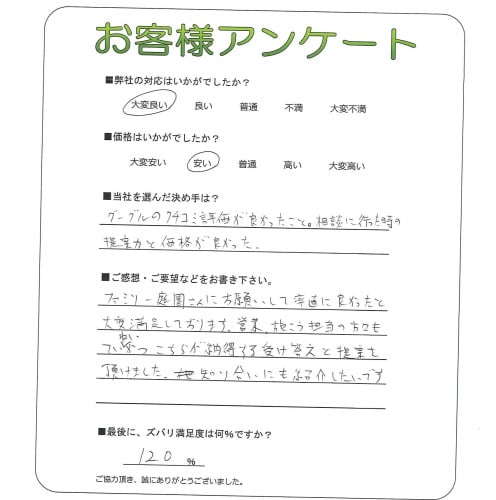 お客様アンケート
■弊社の対応はいかがでしたか?
大変良い 良い 普通 不満 大変不満
■価格はいかがでしたか?
大変安い 安い 普通 高い 大変高い
■当社を選んだ決め手は?
グーグルの口コミ評価が良かったこと。相談に行った時の
提案力と価格が良かった。
■ご感想・ご要望などをお書き下さい。
ファミリー庭園さんにお願いして率直に良かったと
大変満足しております。営業、施こう担当の方々も
ていねいかつこちらが納得する受け答えと提案を
頂けました。知り合いにも紹介したいです
■最後に、ズバリ満足度は何%ですか?
120 %
ご協力頂き、誠にありがとうございました。